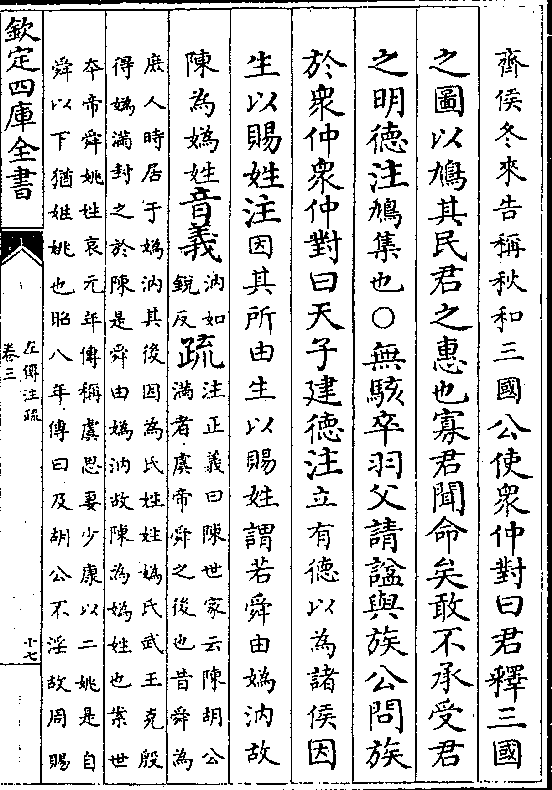 齊侯冬來告稱秋和三國公使衆仲對曰君釋三國
之圖以鳩其民君之惠也寡君聞命矣敢不承受君
之明德注鳩集也○無駭卒羽父請諡與族公問族
於衆仲衆仲對曰天子建德注立有德以為諸侯因
生以賜姓注因其所由生以賜姓謂若舜由媯汭故
陳為媯姓音義汭如銳反疏注正義曰陳世家云陳胡公滿者虞帝舜之後也昔舜為
庶人時居于媯汭其後因為氏姓姓媯氏武王克殷
得媯滿封之於陳是舜由媯汭故陳為媯姓也案世
本帝舜姚姓哀元年傳稱虞思妻少康以二姚是自
舜以下猶姓姚也昭八年傳曰及胡公不淫故周賜
欽定四庫全書
左傳注疏
卷三
十七